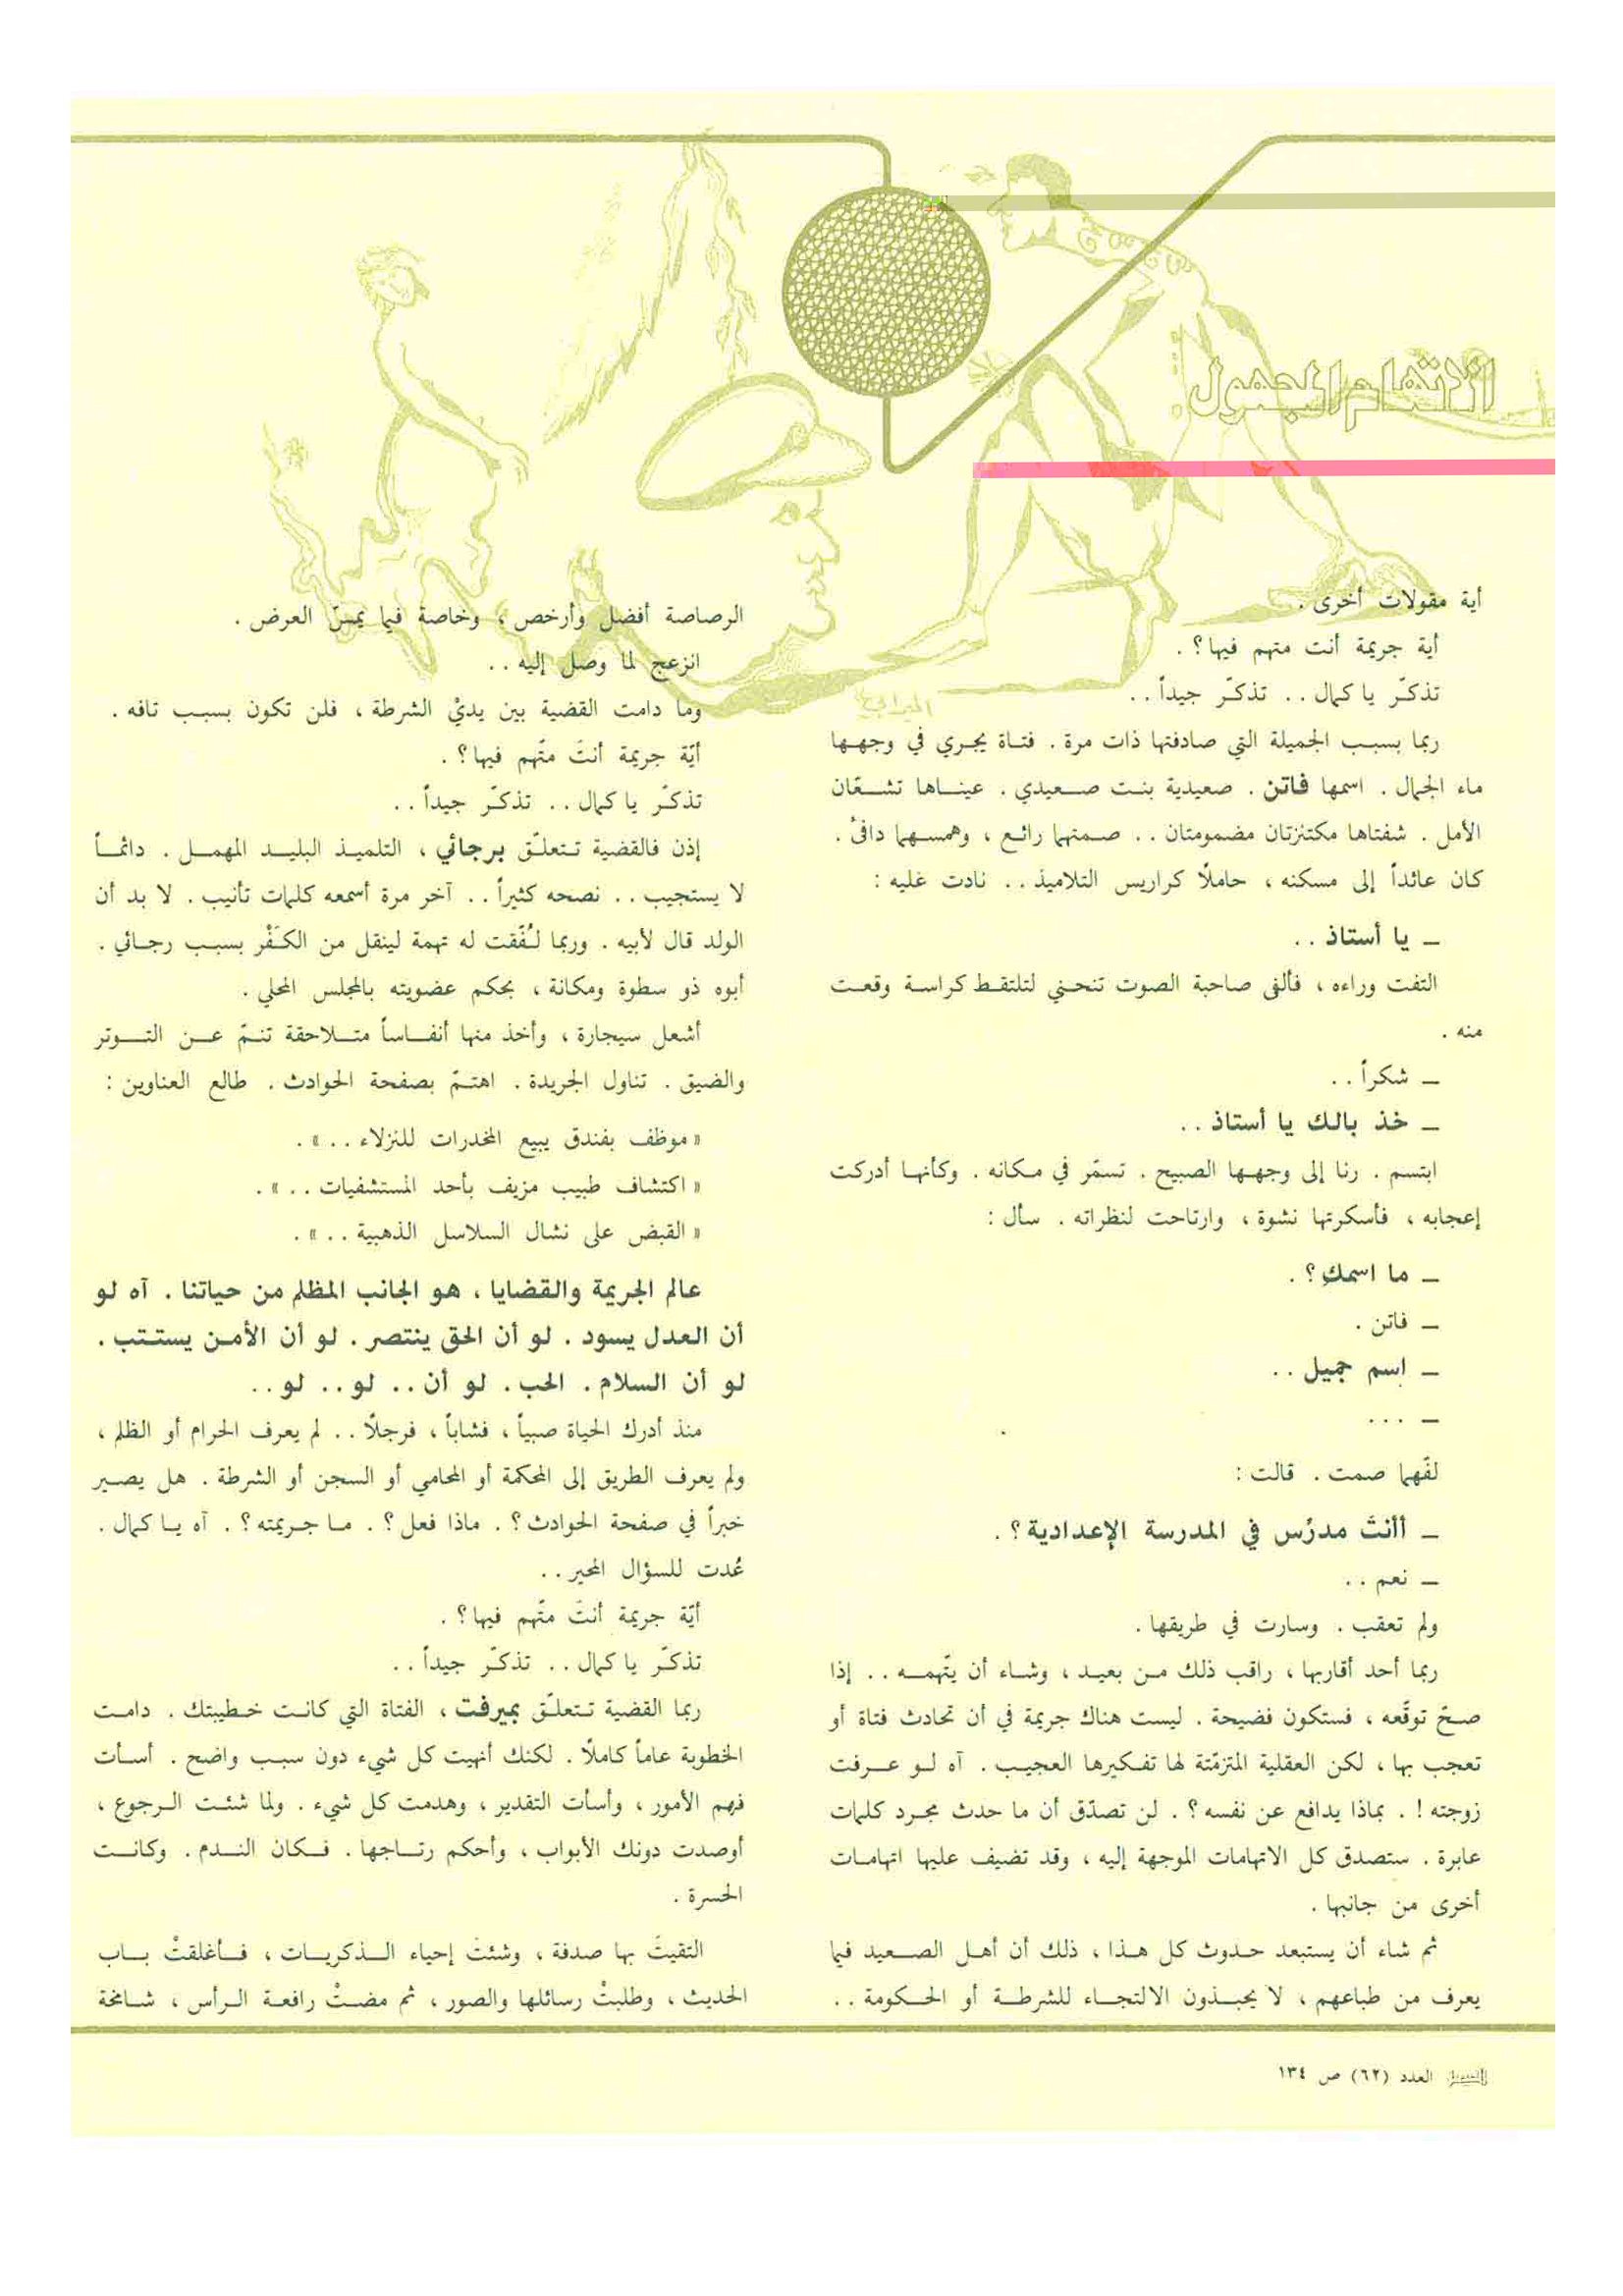 الاتهام المجهول
أية مقولات أخرى .
أية جريمة أنت متهم فيها؟ .
تذكّر يا كمال .. تذكّر جيداً ..
ربما بسبب الجميلة التي صادفتها ذات مرة . فتاة يجري في وجهها
ماء الجمال . اسمها فاتن . صعيدية بنت صعيدي . عيناها تشعّان
الأمل . شفتاها مكتنزتان مضمومتان .. صمتهما رائع ، وهمسهما دافئ .
كان عائداً إلى مسكنه ، حاملًا كراريس التلاميذ .. نادت غليه :
ـ يا أستاذ ..
التفت وراءه ، فألفى صاحبة الصوت تنحني لتلتقط كراسة وقعت
منه .
ـ شكراً ..
ـ خذ بالك يا أستاذ ..
ابتسم . رنا إلى وجهها الصبيح . تسمّر في مكانه . وكأنها أدركت
إعجابه ، فأسكرتها نشوة ، وارتاحت لنظراته . سأل :
ـ ما اسمكِ؟ .
ـ فاتن .
ـ اسم جميل ..
ـ ...
لفّهما صمت . قالت :
ـ أأنتَ مدرّس في المدرسة الإعدادية؟ .
ـ نعم ..
ولم تعقب . وسارت في طريقها .
ربما أحد أقاربها ، راقب ذلك من بعيد ، وشاء أن يتّهمه .. إذا
صحّ توقّعه ، فستكون فضيحة . ليست هناك جريمة في أن تحادث فتاة أو
تعجب بها ، لكن العقلية المتزمّتة لها تفكيرها العجيب . آه لو عرفت
زوجته ! . بماذا يدافع عن نفسه ؟ . لن تصدّق أن ما حدث مجرد كلمات
عابرة . ستصدق كل الاتهامات الموجهة إليه ، وقد تضيف عليها اتهامات
أخرى من جانبها .
ثم شاء أن يستبعد حدوث كل هذا ، ذلك أن أهل الصعيد فيما
يعرف من طباعهم ، لا يحبذون الالتجاء للشرطة أو الحكومة ..
الرصاصة أفضل وأرخص ، وخاصة فيما يمسّ العرض .
انزعج لما وصل إليه ..
وما دامت القضية بين يديْ الشرطة ، فلن تكون بسبب تافه .
أيّة جريمة أنتَ متّهم فيها؟ .
تذكّر يا كمال .. تذكّر جيداً ..
إذن فالقضية تتعلّق برجائي ، التلميذ البليد المهمل . دائماً
لا يستجيب .. نصحه كثيراً .. آخر مرة أسمعه كلمات تأنيب . لا بد أن
الولد قال لأبيه . وربما لُفّقت له تهمة لينقل من الكَفْر بسبب رجائي .
أبوه ذو سطوة ومكانة ، بحكم عضويته بالمجلس المحلي .
أشعل سيجارة ، وأخذ منها أنفاساً متلاحقة تنمّ عن التوتر
والضيق . تناول الجريدة . اهتمّ بصفحة الحوادث . طالع العناوين :
« موظف بفندق يبيع المخدرات للنزلاء .. » .
« اكتشاف طبيب مزيف بأحد المستشفيات .. » .
« القبض على نشال السلاسل الذهبية .. » .
عالم الجريمة والقضايا ، هو الجانب المظلم من حياتنا . آه لو
أن العدل يسود . لو أن الحق ينتصر . لو أن الأمن يستتب .
لو أن السلام . الحب . لو أن .. لو .. لو ..
منذ أدرك الحياة صبياً ، فشاباً ، فرجلًا .. لم يعرف الحرام أو الظلم ،
ولم يعرف الطريق إلى المحكمة أو المحامي أو السجن أو الشرطة . هل يصير
خبراً في صفحة الحوادث؟ . ماذا فعل؟ . ما جريمته؟ . آه يا كمال .
عُدت للسؤال المحير ..
أيّة جريمة أنتَ متّهم فيها؟ .
تذكّر يا كمال .. تذكّر جيداً ..
ربما القضية تتعلّق بميرفت ، الفتاة التي كانت خطيبتك . دامت
الخطوبة عاماً كاملًا . لكنك أنهيت كل شيء دون سبب واضح . أسأت
فهم الأمور ، وأسأت التقدير ، وهدمت كل شيء . ولما شئت الرجوع ،
أوصدت دونك الأبواب ، وأحكم رتاجها . فكان الندم . وكانت
الحسرة .
التقيتَ بها صدفة ، وشئتَ إحياء الذكريات ، فأغلقتْ باب
الحديث ، وطلبتْ رسائلها والصور ، ثم مضتْ رافعة الرأس ، شامخة
الفيصل العدد (٦٢) ص ١٣٤